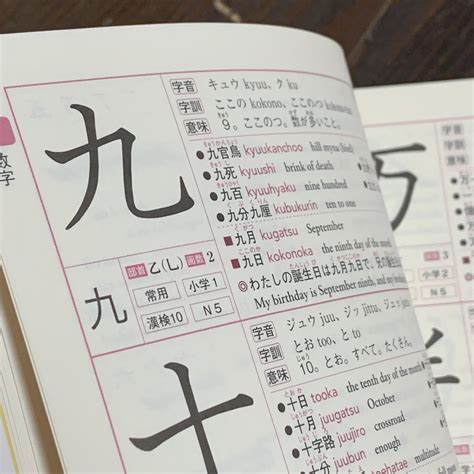 数字
九
字音 キュウ kyuu、ク ku
字訓 ここの kokono、ここのつ kokono-tsu
意味 9。ここのつ。数が多いこと。
●九官鳥 kyuukanchoo hill myna (bird)
●九死 kyuushi brink of death
●九百 kyuuhyaku nine hundred
●九分九厘 kubukurin ten to one
■九月 kugatsu September
■九日 kokonoka the ninth day of the month
◎わたしの誕生日は九月九日で、兄の誕生日
My birthday is September ninth, and my
部首 乙(乚) 画数 2
九
常用 小学1
漢検10 N5
十
字音 ジュウ juu、ジッ jittu、ジュッ
字訓 とお too、と to
意味 10。とお。すべて。たくさん。
●十日 tooka the tenth day of the month
●十月 juugatsu October
●十字路 juujiro crossroad
●十分 juubun enough
multitude
万
3
小学2
N5